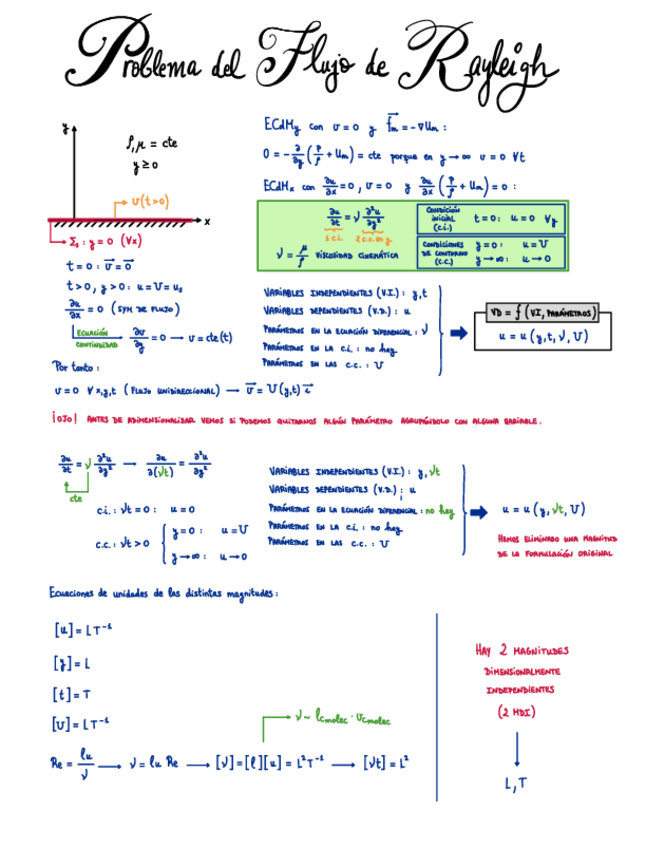 Problema del Flujo de Rayleigh
y
ρ, μ = cte
y ≥ 0
U(t>0)
x
Σs : y = 0 (∀x)
t = 0 : v⃗ = 0⃗
t > 0, y > 0 : u = U = us
∂u/∂x = 0 (SYM DE FLUJO)
ECUACIÓN CONTINUIDAD
∂v/∂y = 0 → v = cte(t)
Por tanto :
v = 0 ∀x,y,t (FLUJO UNIDIRECCIONAL) → v⃗ = U(y,t) i⃗
ECdMy con v = 0 y f⃗m = -∇Um :
0 = - ∂/∂y (P/ρ + Um) = cte porque en y → ∞ v = 0 ∀t
ECdMx con ∂u/∂x = 0, v = 0 y ∂/∂x (P/ρ + Um) = 0 :
∂u/∂t = ν ∂²u/∂y²
1 c.i. 2 c.c. en y
ν = μ/ρ VISCOSIDAD CINEMÁTICA
CONDICIÓN INICIAL (c.i.) t = 0 : u = 0 ∀y
CONDICIONES DE CONTORNO (c.c.) y = 0 : u = U
y → ∞ : u → 0
VARIABLES INDEPENDIENTES (V.I.) : y,t
VARIABLES DEPENDIENTES (V.D.) : u
PARÁMETROS EN LA ECUACIÓN DIFERENCIAL : ν
PARÁMETROS EN LA c.i. : no hay
PARÁMETROS EN LAS c.c. : U
VD = f (VI, PARÁMETROS)
u = u (y, t, ν, U)
¡OJO! ANTES DE ADIMENSIONALIZAR VEMOS SI PODEMOS QUITARNOS ALGÚN PARÁMETRO AGRUPÁNDOLO CON ALGUNA VARIABLE.
∂u/∂t = ν ∂²u/∂y² → ∂u/∂(νt) = ∂²u/∂y²
cte
c.i. : νt = 0 : u = 0
c.c. : νt > 0 { y = 0 : u = U
y → ∞ : u → 0
VARIABLES INDEPENDIENTES (V.I.) : y, νt
VARIABLES DEPENDIENTES (V.D.) : u
PARÁMETROS EN LA ECUACIÓN DIFERENCIAL : no hay
PARÁMETROS EN LA c.i. : no hay
PARÁMETROS EN LAS c.c. : U
u = u (y, νt, U)
HEMOS ELIMINADO UNA MAGNITUD
DE LA FORMULACIÓN ORIGINAL
Ecuaciones de unidades de las distintas magnitudes :
[u] = L T⁻¹
[y] = L
[t] = T
[U] = L T⁻¹
ν ~ lcmolec · vcmolec
Re = lu/ν → ν = lu Re → [ν] = [l][u] = L²T⁻¹ → [νt] = L²
HAY 2 MAGNITUDES
DIMENSIONALMENTE
INDEPENDIENTES
(2 MDI)
L, T